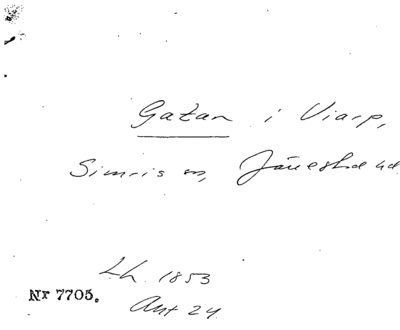 Gatan i Viarp,
Simris sn, Järrestad hd
Lh. 1853
Nr 7705.
Ant 24